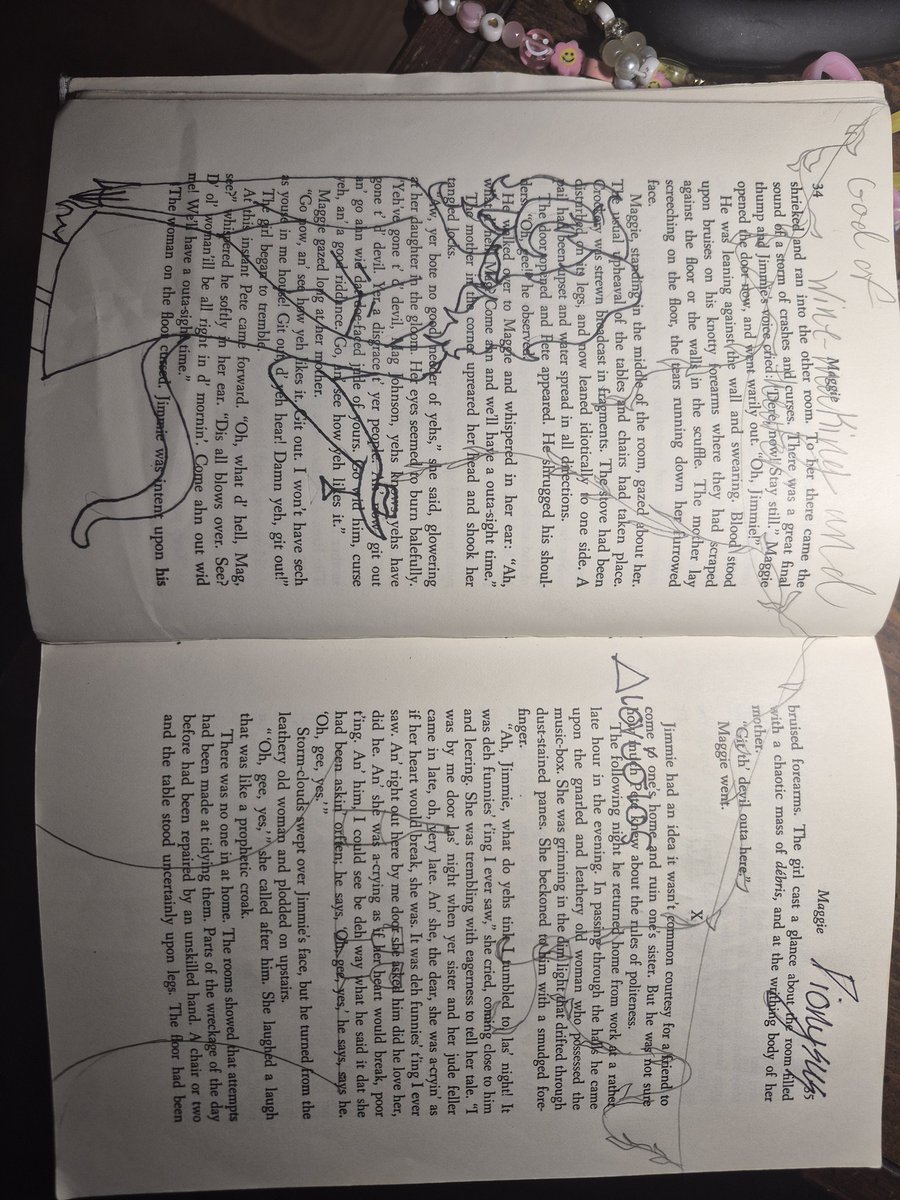 God of
Wine-making and
34
Maggie
shrieked and ran into the other room. To her there came the
sound of a storm of crashes and curses. There was a great final
thump and Jimmie's voice cried: "Dere, now! Stay still." Maggie
opened the door now, and went warily out. "Oh, Jimmie!"
He was leaning against the wall and swearing. Blood stood
upon bruises on his knotty forearms where they had scraped
against the floor or the walls in the scuffle. The mother lay
screeching on the floor, the tears running down her furrowed
face.
Maggie, standing in the middle of the room, gazed about her.
The usual upheaval of the tables and chairs had taken place.
Crockery was strewn broadcast in fragments. The stove had been
disturbed on its legs, and now leaned idiotically to one side. A
pail had been upset and water spread in all directions.
The door opened and Pete appeared. He shrugged his shoul-
ders. "Oh, gee!" he observed.
He walked over to Maggie and whispered in her ear: "Ah,
what d' hell, Mag? Come ahn and we'll have a outa-sight time."
The mother in the corner upreared her head and shook her
tangled locks.
"Aw, yer bote no good, needer of yehs," she said, glowering
at her daughter in the gloom. Her eyes seemed to burn balefully.
"Yeh've gone t' d' devil, Mag Johnson, yehs knows yehs have
gone t' d' devil. Yer a disgrace t' yer people. An' now, git out
an' go ahn wid dat doe-faced jude of yours. Go wid him, curse
yeh, an' a good riddance. Go, an' see how yeh likes it."
Maggie gazed long at her mother.
"Go now, an' see how yeh likes it. Git out. I won't have sech
as youse in me house! Git out, d' yeh hear! Damn yeh, git out!"
The girl began to tremble.
At this instant Pete came forward. "Oh, what d' hell, Mag,
see?" whispered he softly in her ear. "Dis all blows over. See?
D' ol' woman'ill be all right in d' mornin'. Come ahn out wid
me! We'll have a outa-sight time."
The woman on the floor cursed. Jimmie was intent upon his
Maggie
Dionysus
bruised forearms. The girl cast a glance about the room filled
with a chaotic mass of débris, and at the writhing body of her
mother.
"Git th' devil outa here."
Maggie went.
X
Jimmie had an idea it wasn't common courtesy for a friend to
come to one's home and ruin one's sister. But he was not sure
how much Pete knew about the rules of politeness.
The following night he returned home from work at a rather
late hour in the evening. In passing through the halls he came
upon the gnarled and leathery old woman who possessed the
music-box. She was grinning in the dim light that drifted through
dust-stained panes. She beckoned to him with a smudged fore-
finger.
"Ah, Jimmie, what do yehs tink I tumbled to, las' night! It
was deh funnies' t'ing I ever saw," she cried, coming close to him
and leering. She was trembling with eagerness to tell her tale. "I
was by me door las' night when yer sister and her jude feller
came in late, oh, very late. An' she, the dear, she was a-cryin' as
if her heart would break, she was. It was deh funnies' t'ing I ever
saw. An' right out here by me door she asked him did he love her,
did he. An' she was a-crying as if her heart would break, poor
t'ing. An' him, I could see be deh way what he said it dat she
had been askin' orften; he says, 'Oh, gee, yes,' he says, says he.
'Oh, gee, yes.'"
Storm-clouds swept over Jimmie's face, but he turned from the
leathery old woman and plodded on upstairs.
"'Oh, gee, yes,'" she called after him. She laughed a laugh
that was like a prophetic croak.
There was no one in at home. The rooms showed that attempts
had been made at tidying them. Parts of the wreckage of the day
before had been repaired by an unskilled hand. A chair or two
and the table stood uncertainly upon legs. The floor had been